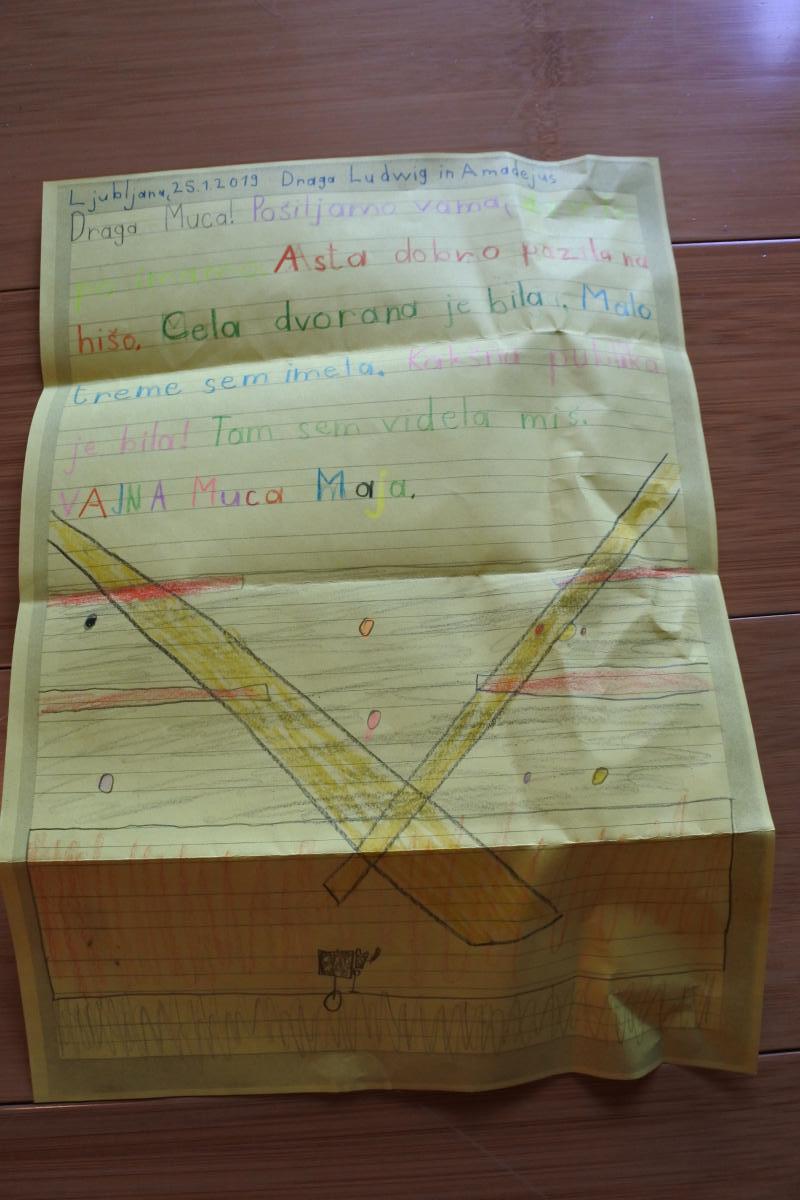 Ljubljana, 25.1.2019 Draga Ludwig in Amadejus
Draga Muca! Pošiljamo vama,
po imamo. A sta dobro pazila na
hišo. Cela dvorana je bila. Malo
treme sem imela. Kakšna publika
je bila! Tam sem videla miš.
VAJNA Muca Maja.